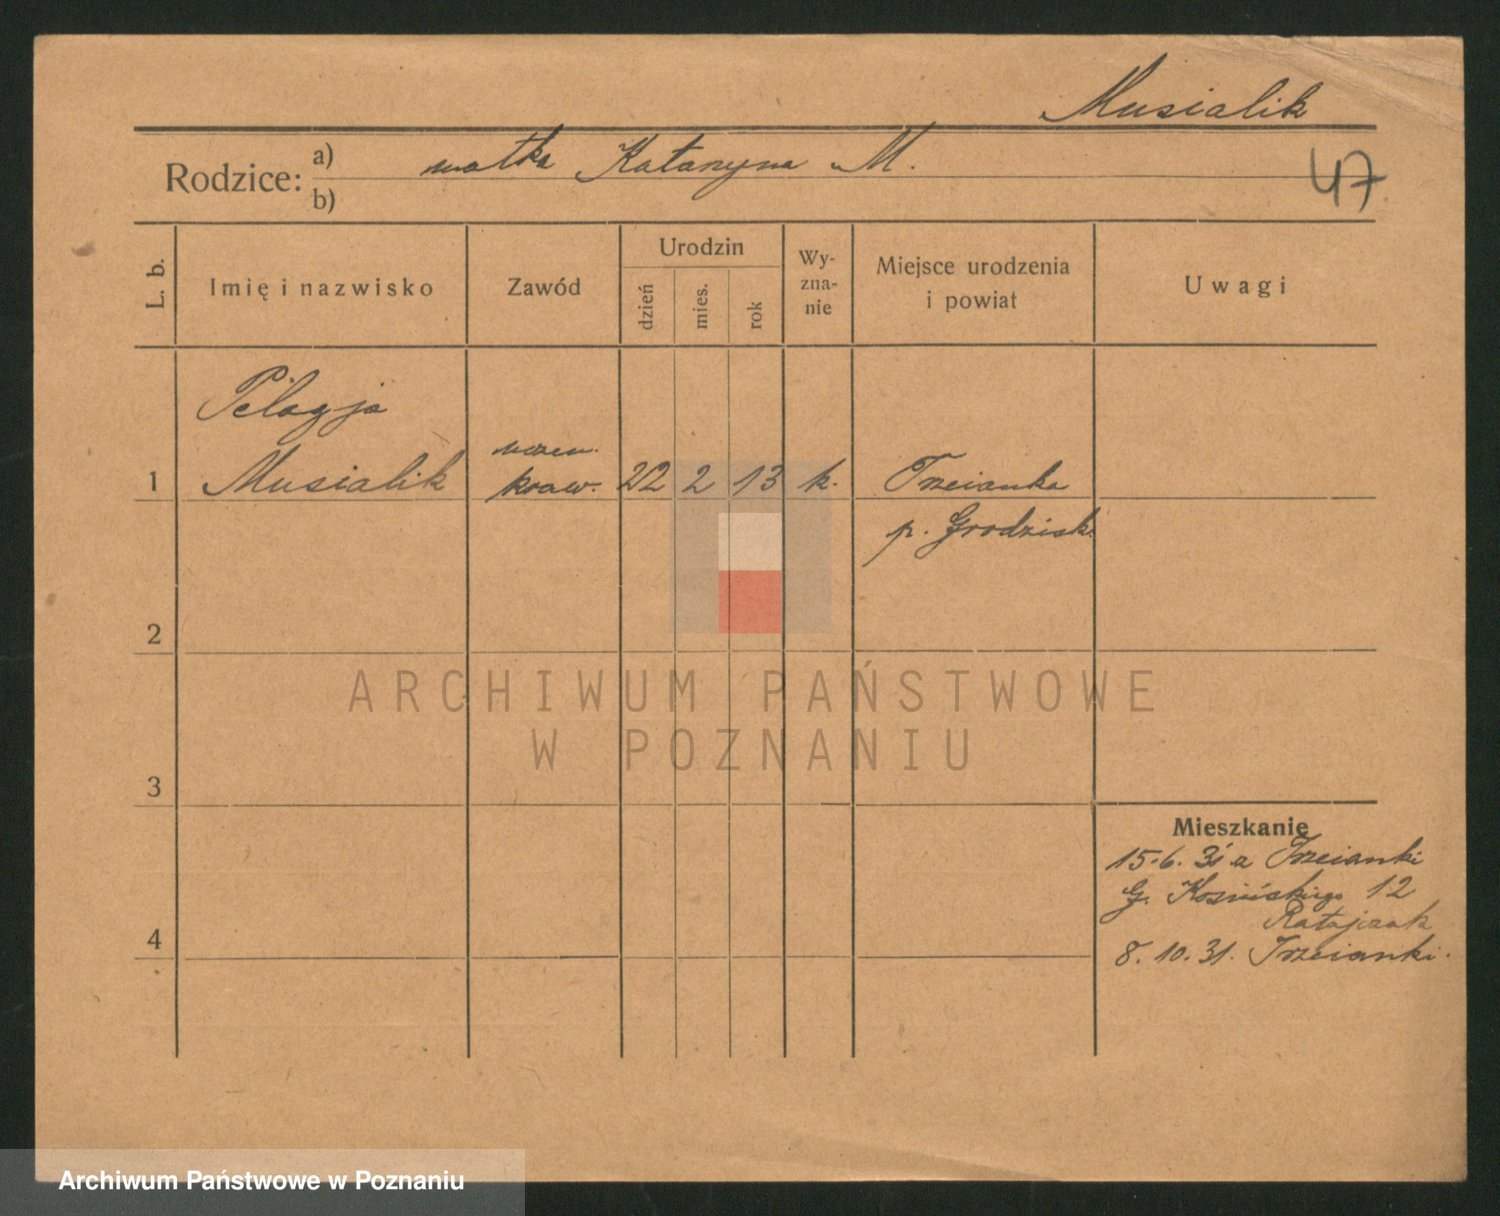 Musialik
Rodzice: a) matka Katarzyna M.
b)
47
L. b. Imię i nazwisko Zawód Urodzin dzień mies. rok Wy-zna-nie Miejsce urodzenia i powiat Uwagi
Pelagja
1 Musialik uczen. kraw. 22 2 13 k. Trzcianka
p. Grodzisk.
2
ARCHIWUM PAŃSTWOWE
W POZNANIU
3
Mieszkanie
15.6.31 z Trzcianki
G. Kosińskiego 12
Ratajczak
4
8.10.31. Trzcianki.
Archiwum Państwowe w Poznaniu